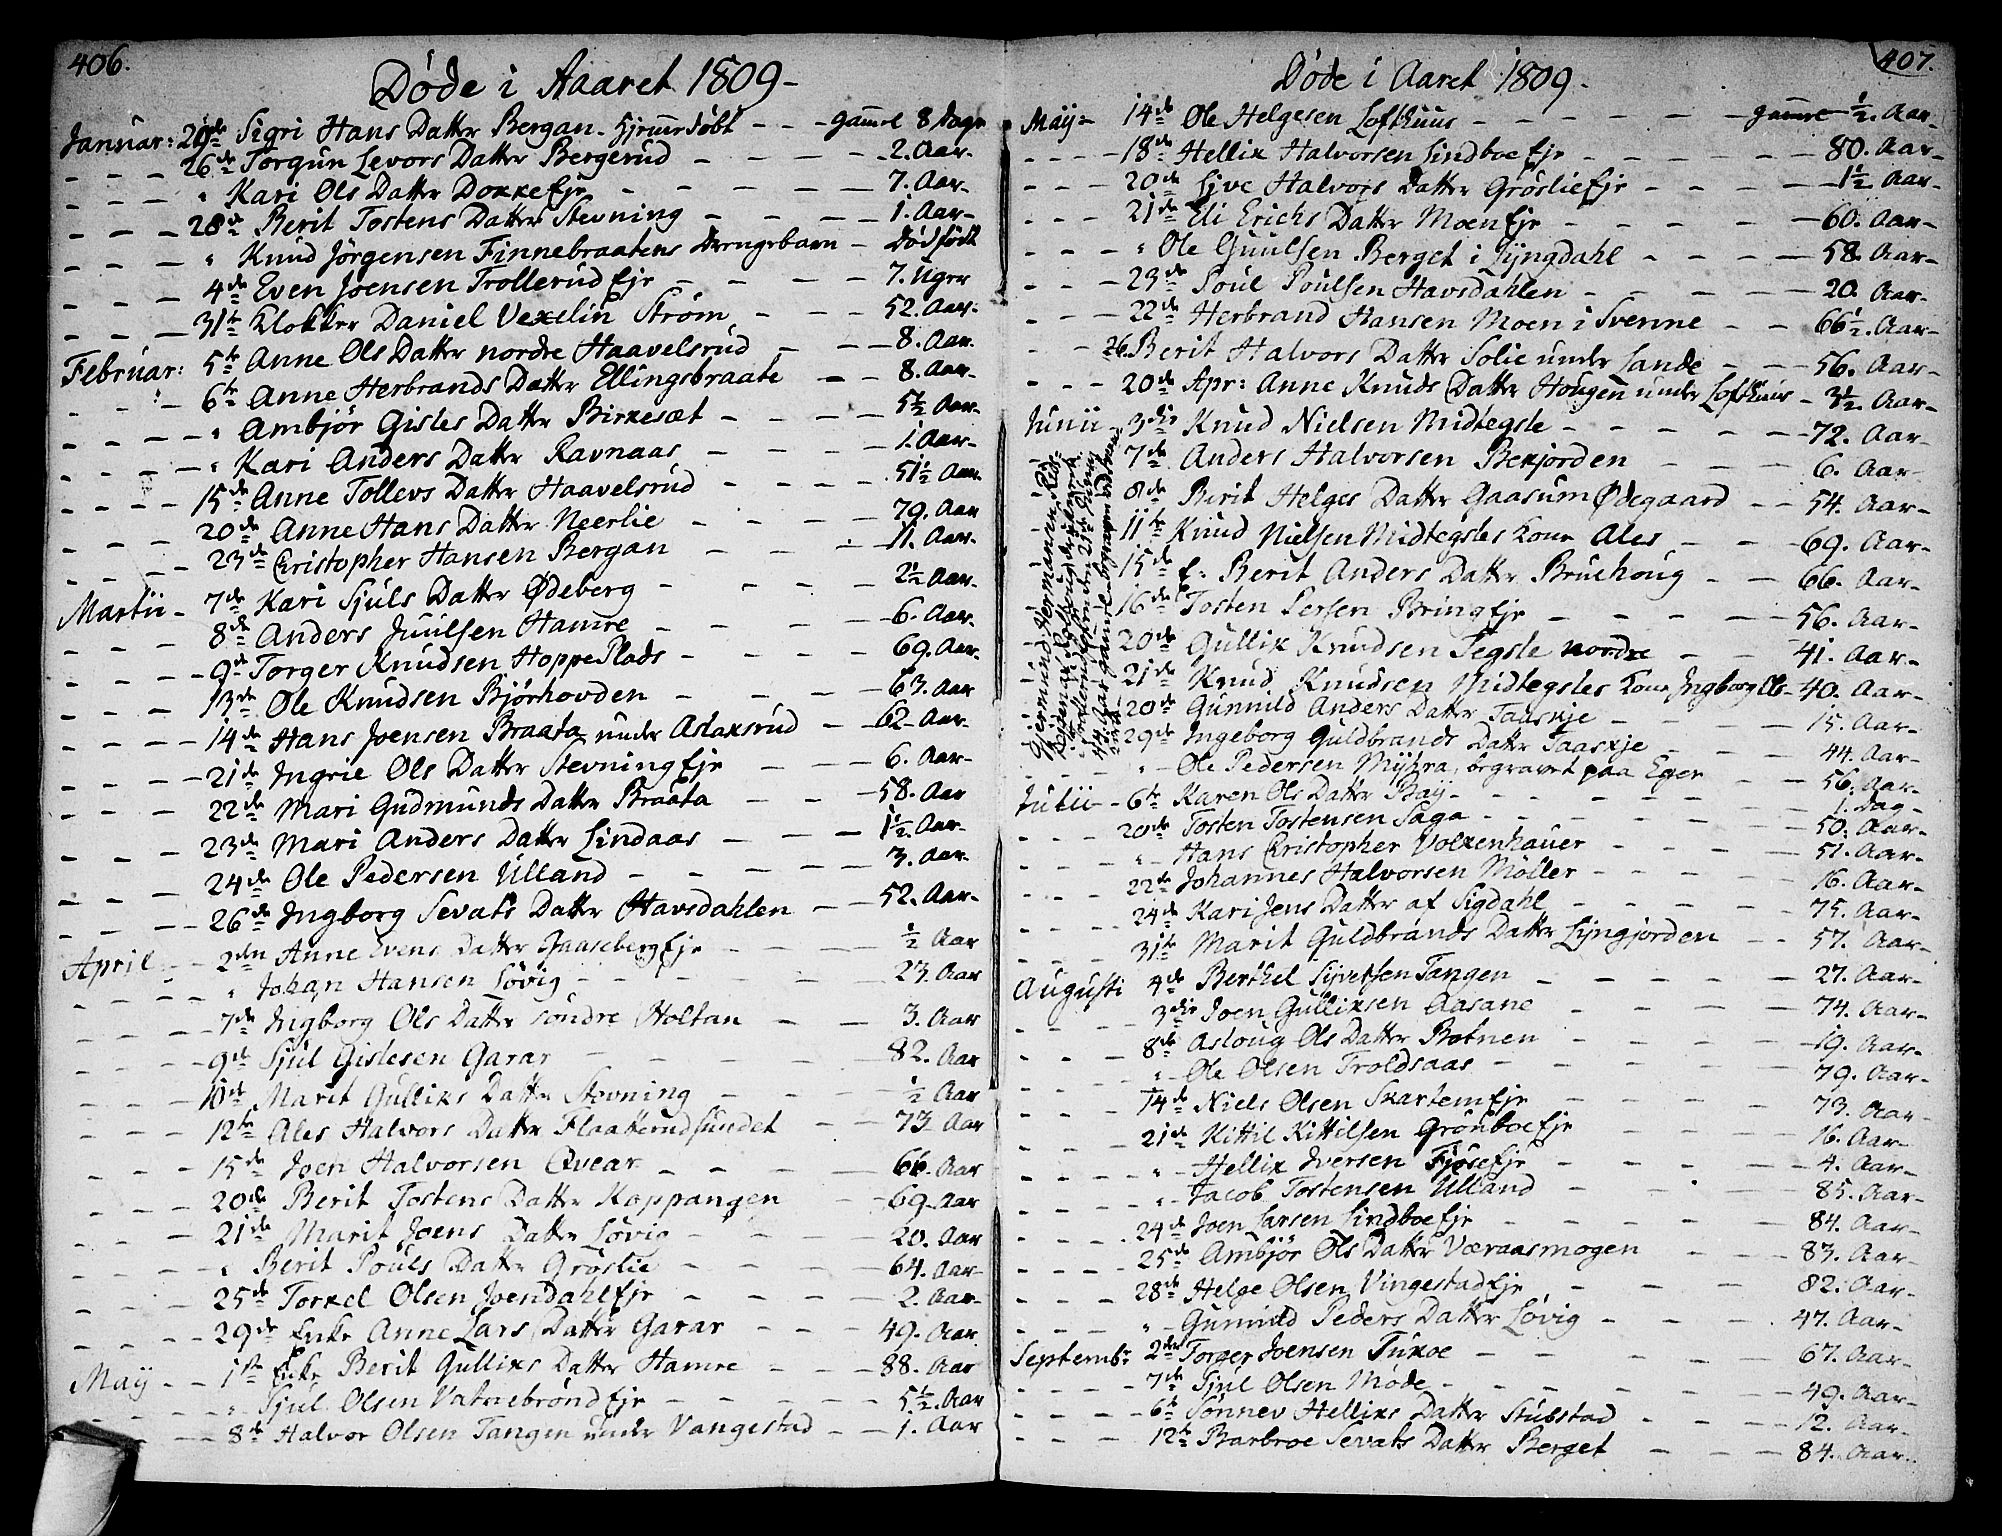 406.
Døde i Aaaret 1809-
Januar: 20de Sigri Hans Datter Bergan. hjemedøbt - - - gammel 8 Dage
- - - 26de Torgun Levors Datter Bergerud - - - - 2. Aar-
- - - " Kari Ols Datter DokkeEje - - - - 7. Aar-
- - - 28de Berit Tostens Datter Stevning - - - - 1. Aar-
- - - " Knud Jörgensen Finnebraatens Drengebarn - Dødfödt
- - - 4de Even Joensen Trollerud Eje - - - - 7. Uger
- - - 31te Klokker Daniel Vexelin Strøm - - - 52. Aar-
Februar: 5te Anne Ols Datter nordre Haavelsrud - - - 8. Aar
- - - 6te Anne Herbrands Datter Ellingsbraate - - 8. Aar-
- - - " Ambjør Gisles Datter Birkesæt - - - - 5½ Aar-
- - - " Kari Anders Datter Ravnaas - - - - 1. Aar-
- - - 15de Anne Tollevs Datter Haavelsrud - - - 51½ Aar-
- - - 20de Anne Hans Datter Neerlie - - - - 79. Aar
- - - 23de Christopher Hansen Bergan - - - - 11. Aar-
Martii - 7de Kari Sjuls Datter Ødeberg - - - - 2½ Aar-
- - - 8de Anders Juulsen Hamre - - - - 6. Aar-
- - - 9de Torger Knudsen HoppePlads - - - - 69. Aar-
- - - 13de Ole Knudsen Bjørhovden - - - - 63. Aar
- - - 14de Hans Joensen Braata under Aslaksrud - 62. Aar-
- - - 21de Ingrie Ols Datter Stevning Eje - - - 6. Aar-
- - - 22de Mari Gudmunds Datter Braata - - - 58. Aar
- - - 23de Mari Anders Datter Lindaas - - - 1½. Aar-
- - - 24de Ole Pedersen Ulland - - - - 3. Aar-
- - - 26de Ingborg Sevats Datter Havsdahlen - - 52. Aar-
April - 2den Anne Evens Datter Gaaseberg Eje - - - ½ Aar
- - - " Johan Hansen Løvig - - - - 23. Aar
- - - 7de Ingborg Ols Datter söndre Holtan - - 3. Aar
- - - 9de Sjul Gislesen Garar - - - - 82. Aar
- - - 10de Marit Gulliks Datter Stevning - - - ½ Aar
- - - 12te Ales Halvors Datter Flaatterudsundet - 73 Aar
- - - 15de Joen Halvorsen Qvear - - - - 66. Aar
- - - 20de Berit Tostens Datter Koppangen - - 69. Aar
- - - 21de Marit Joens Datter Løvig - - - 20. Aar
- - - " Berit Pouls Datter Gröslie - - - 64. Aar-
- - - 25de Torkel Olsen JoendahlEje - - - - 2. Aar-
- - - 29de Enke Anne Lars Datter Garar - - - 49. Aar
May - - 1ste Enke Berit Gulliks Datter Hamre - - - 88. Aar
- - - " Sjul Olsen Vatnebrønd Eje - - - - 5½. Aar
- - 8de Halvor Olsen Tangen under Vangestad - - 1. Aar
407.
Døde i Aaret 1809-
May- 14de Ole Helgesen Lofthuus - - - - - gammel ½. Aar-
- - - 18de Hellik Halvorsen Lindboe Eje - - - - 80. Aar-
- - - 20de Live Halvors Datter GröslieEje - - - 1½ Aar-
- - - 21de Eli Erichs Datter MoenEje - - - - 60. Aar-
- - - " Ole Guulsen Berget i Lyngdahl - - - - 58. Aar-
- - - 23de Poul Poulsen Havsdahlen - - - - 20. Aar-
- - - 22de Herbrand Hansen Moen i Svenne - - 66½. Aar-
- - - 26. Berit Halvors Datter Solie under Lande - - 56. Aar-
- - - 20de Apr: Anne Knuds Datter Hougen under Lofthuus - 3½. Aar-
Junii - 3die Knud Nielsen Midtegsle - - - - - 72. Aar-
- 7de Anders Halvorsen Bekjorden - - - - 6. Aar-
- 8de Berit Helges Datter Gaasum Ødegaard - - 54. Aar-
- 11te Knud Nielsen Midtegsles Kone Ales - - - 69. Aar-
- 15de E: Berit Anders Datter Bruehoug - - - 66. Aar-
- 16de Tosten Larsen BringEje - - - - 56. Aar-
- 20de Gullik Knudsen Tegsle nordre - - 41. Aar-
- 21de Knud Knudsen Midtegsles Kone Ingborg Ols- 40. Aar-
- 20de Gunnild Anders Datter Taaskje - - - 15. Aar-
- 29de Ingeborg Guldbrands Datter Taaskje - - 44. Aar-
- - - " Ole Pedersen Myhra, begravet paa Eger - - 56. Aar-
Julii - 6te Karen Ols Datter Bay - - - - - 1. Dag-
- - - 20de Tosten Tostensen Saga - - - - - 50. Aar-
- - - " Hans Christopher Volkenhauer - - - 51. Aar-
- - - 22de Johannes Halvorsen Möller - - - - 16. Aar-
- - - 24de Kari Jens Datter af Sigdahl - - - 75. Aar-
- - - 31te Marit Guldbrands Datter Lyngjorden - - 57. Aar-
Augusti 4de Berthel Syvetsen Tangen - - - - 27. Aar-
- - - 3die Joen Gulliksen Aasane - - - - 74. Aar-
- - - 8de Asloug Ols Datter Botnen - - - - 19. Aar-
- - - " Ole Olsen Troldsaas - - - - 79. Aar-
- - - 14de Niels Olsen SkartemEje - - - - 73. Aar-
- - - 21de Kittil Kittilsen GrönboeEje - - - 16. Aar-
- - - " Hellik Iversen FjöseEje - - - - 4. Aar-
- - - " Jacob Tostensen Ulland - - - - 85. Aar-
- - - 24de Joen Larsen LindboeEje - - - - 84. Aar-
- - - 25de Ambjör Ols Datter Væraasmogen - - 83. Aar-
- - - 28de Helge Olsen VingestadEje - - - 82. Aar-
- - - " Gunnild Peders Datter Løvig - - - 47. Aar-
Septembr. 2den Torger Joensen Tukoe - - - - 67. Aar-
- - - 7de Sjul Olsen Møde - - - - - 49. Aar-
- - - 6te Sønnev Helliks Datter Stubstad - - - 12. Aar-
- - - 12te Barbroe Sevats Datter Berget - - - 84. Aar-
Gjermund Hermansen
44 Aar gammel begraven